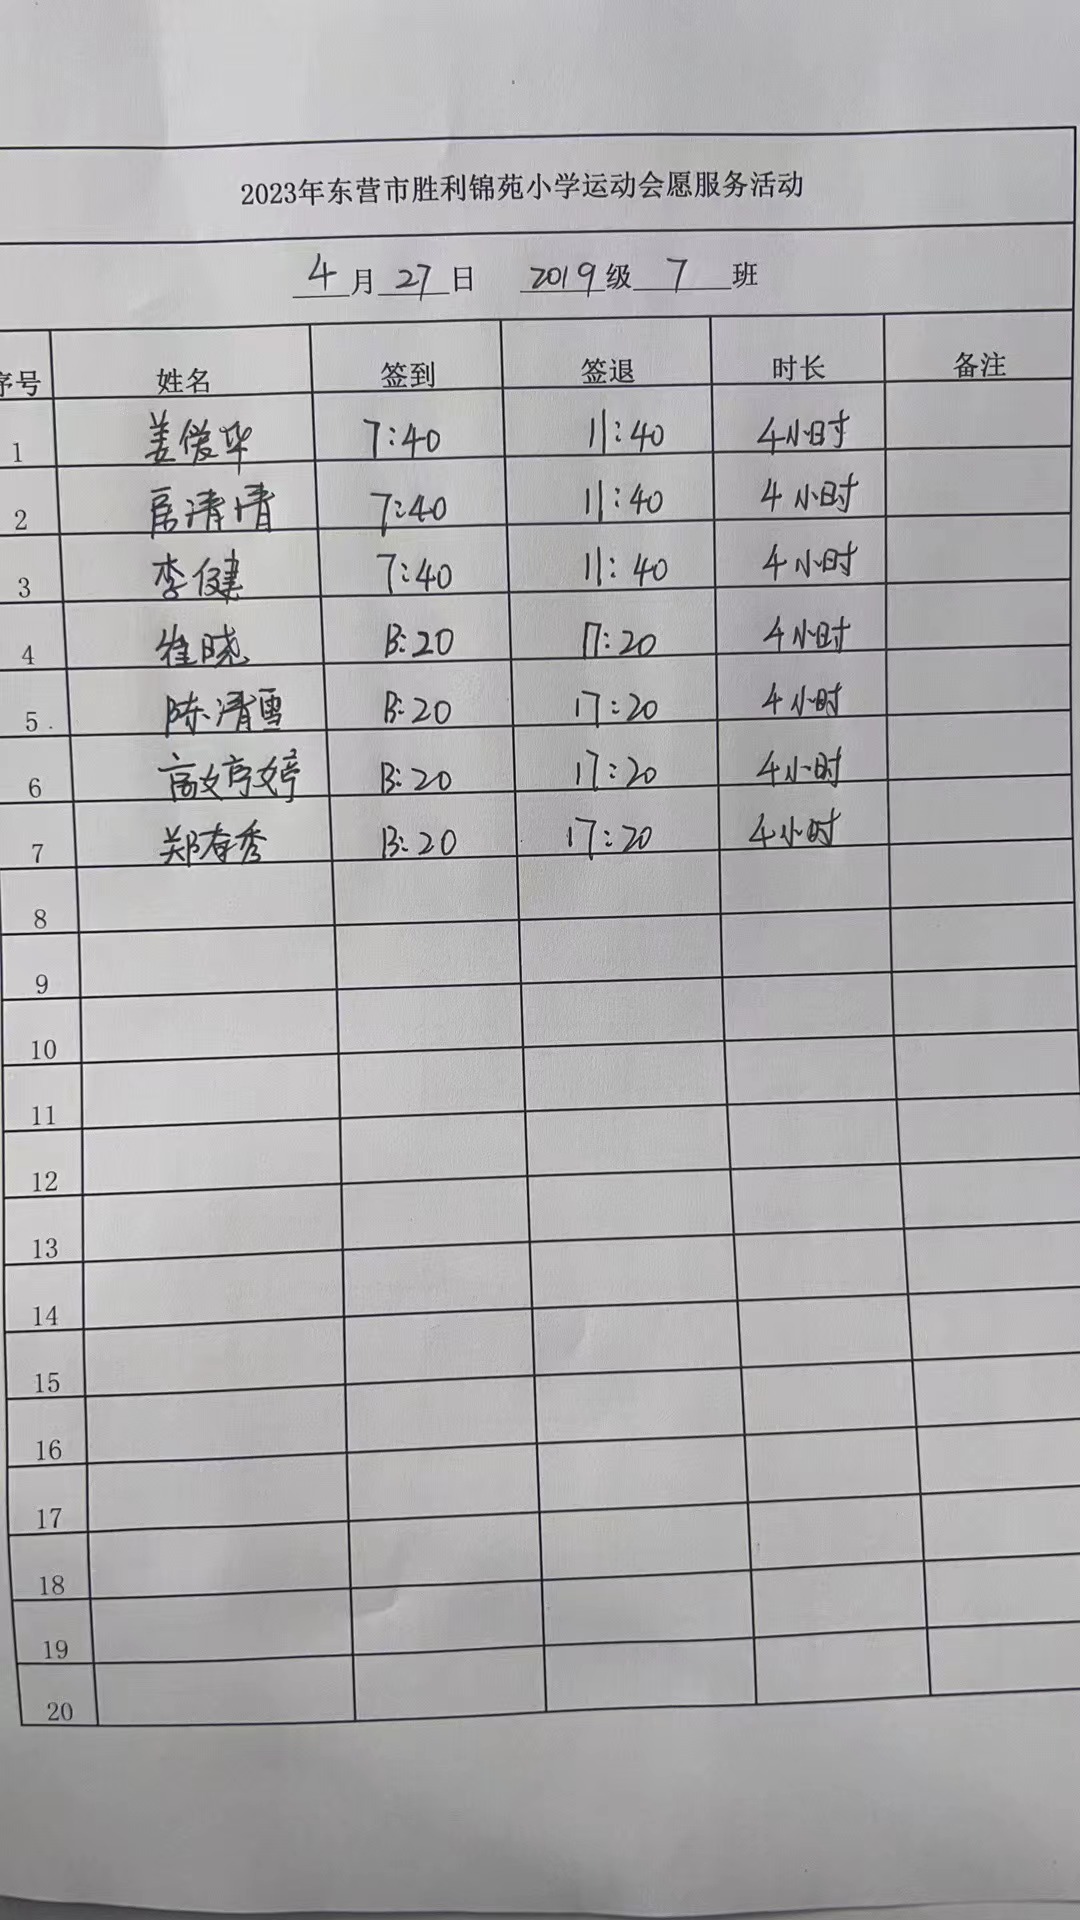 2023年东营市胜利锦苑小学运动会愿服务活动
4月27日 2019级 7 班
序号 姓名 签到 签退 时长 备注
1 姜爱华 7:40 11:40 4小时
2 清清 7:40 11:40 4小时
3 李健 7:40 11:40 4小时
4 崔晓 13:20 17:20 4小时
5 陈清雪 13:20 17:20 4小时
6 高婷婷 13:20 17:20 4小时
7 郑春秀 13:20 17:20 4小时
8
9
10
11
12
13
14
15
16
17
18
19
20